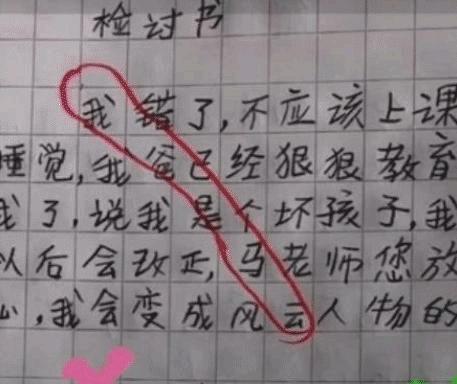 检讨书
我错了,不应该上课
睡觉,我爸已经狠狠教育
我了,说我是个坏孩子,我
以后会改正,马老师您放
心,我会变成风云人物的